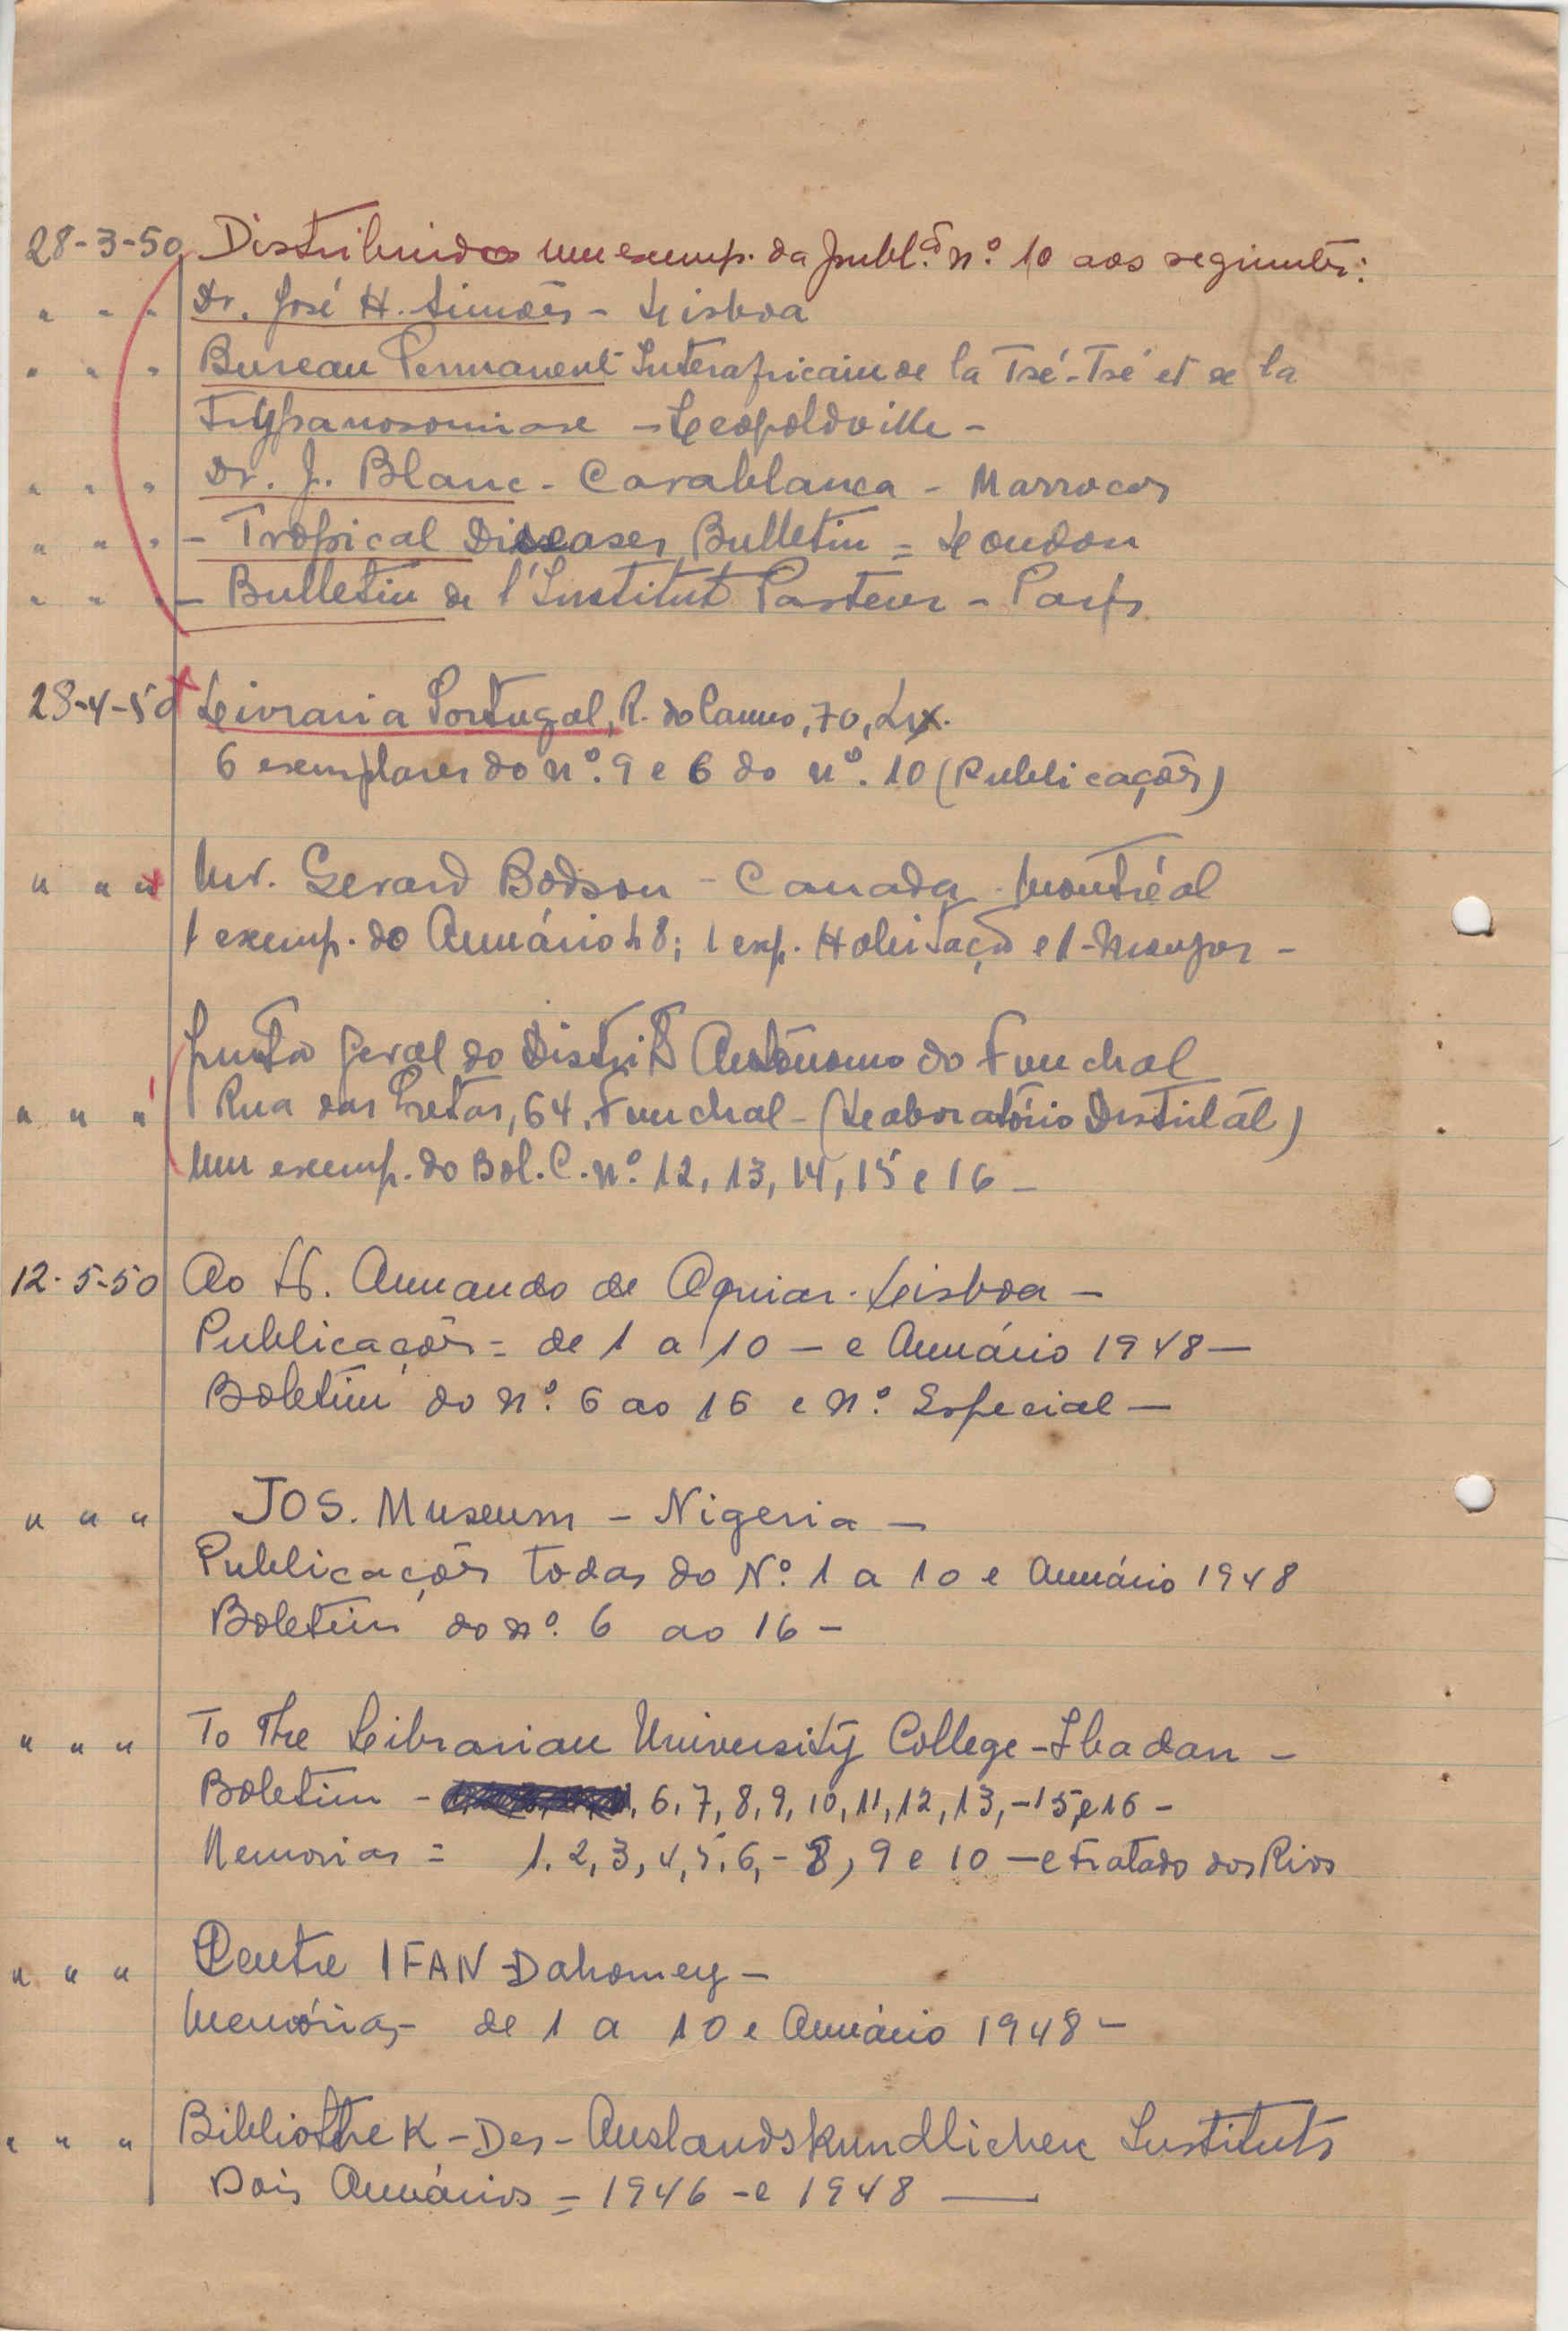 28-3-50 Distribuidos um exemp. da publ.ª n.º 10 aos seguintes:
" " " Dr. José H. Simões - Lisboa
" " " Bureau Permanent Interafricain de la Tsé-Tsé et de la
Trypanosomiase - Leopoldville -
" " " Dr. J. Blanc - Casablanca - Marrocos
" " " - Tropical Diseases Bulletin = London
" " " - Bulletin de l'Institut Pasteur - Paris
28-4-50 Livraria Portugal, R. do Carmo, 70, Lx.
6 exemplares do n.º 9 e 6 do n.º 10 (Publicações)
" " " Mr. Gerard Bodson - Canada - Montréal
1 exemp. do Anuário 48; 1 exp. Habitação e 1-
Junta Geral do Distrito Autónomo do Funchal
" " " Rua das Pretas, 64, Funchal - (Laboratório Distrital)
Um exemp. do Bol. C. n.º 12, 13, 14, 15 e 16 -
12-5-50 Ao Sr. Armando de Aguiar - Lisboa -
Publicações = de 1 a 10 - e Anuário 1948 -
Boletim do n.º 6 ao 16 e n.º Especial -
" " " JOS. Museum - Nigeria -
Publicações todas do N.º 1 a 10 e Anuário 1948
Boletim do n.º 6 ao 16 -
" " " To The Librarian University College - Ibadan -
Boletim - , 6, 7, 8, 9, 10, 11, 12, 13, - 15, e 16 -
Memorias = 1, 2, 3, 4, 5, 6, - 8, 9 e 10 - e Tratado dos Rios
" " " Centre IFAN - Dahomey -
Memórias - de 1 a 10 e Anuário 1948 -
" " " Bibliothek - Des - Auslandskundlichen Instituts
Dois Anuários = 1946 - e 1948 -